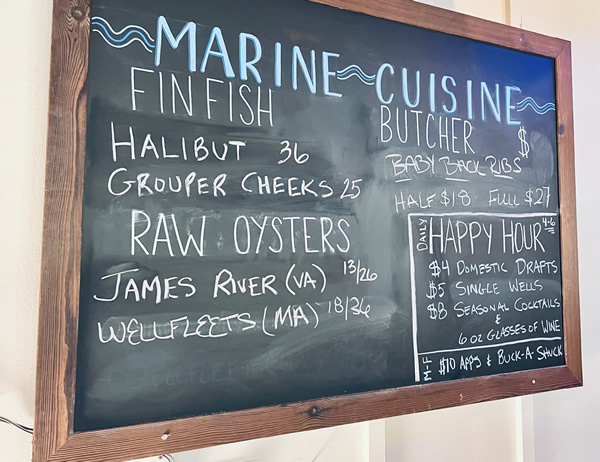 MARINE CUISINE
FIN FISH
HALIBUT 36
GROUPER CHEEKS 25
RAW OYSTERS
JAMES RIVER (VA) 13/26
WELLFLEETS (MA) 18/36
BUTCHER $
BABY BACK RIBS
HALF $18 FULL $27
DAILY HAPPY HOUR 4-6
$4 DOMESTIC DRAFTS
$5 SINGLE WELLS
$8 SEASONAL COCKTAILS
&
6 OZ GLASSES OF WINE
M-F $10 APPS & BUCK-A-SHUCK